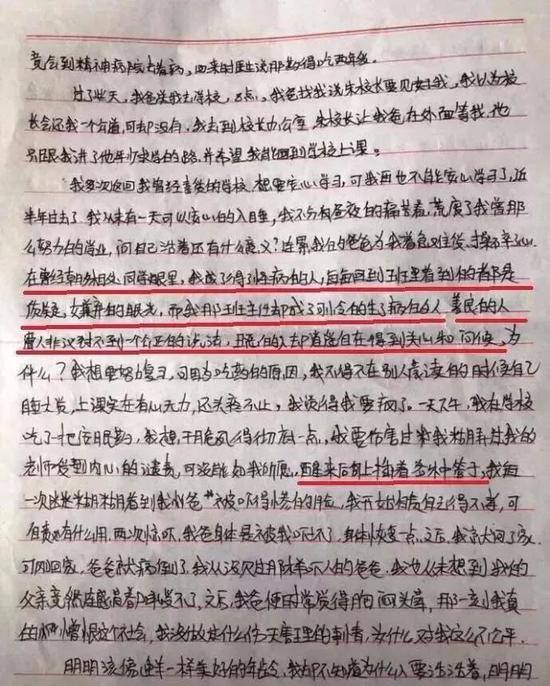 竟会到精神病院去看病，回来时医生说那药得吃两年。
过了些天，我爸送我去学校，8点，我爸找我说朱校长要见见我，我以为校
长会还我一个公道，可却没有，我去到校长办公室，朱校长让我爸在外面等我，他
只跟我讲了他年少求学的路，并希望我能回到学校上课。
我多次返回我曾经喜爱的学校，想要安心学习，可我再也不能安心学习了，近
半年过去了，我从未有一天可以安心的入睡，我不分白昼夜的痛苦着，荒废了我曾那
么努力的学业，问自己活着还有什么意义？连累我的爸爸为我着急难受、操碎了心。
在曾经朝夕相处同学眼里，我成了得了怪病的人，每每回到班里看到的都是
质疑，嫌弃的眼光，而我那班主任却成了可怜的生了病的人，善良的人
蒙人非议讨不到个公正的说法，
得到关心和问候，为
什么？我想要努力复习，可因为吃药的原因，我不得不在别人读书的时候自己
睡大觉，上课实在有心无力，还头疼不止，我觉得我要疯了。一天下午，我在学校
吃了一把安眠药，我想，干脆疯得彻底一点，我要伤害过我
老师受到内心的谴责，可没能如我所愿，醒来后身上插着
管子，我每
一次迷迷糊糊看到我爸
被吓得惨白的脸，我开始自责自己得不该，可
自责有什么用，两次惊吓，我爸身体是被我吓坏了，身体恢复一点之后，我
可刚回家，爸爸就病倒了，我从没见过那样吓人的爸爸，我也从未想到我的
父亲竟然连
呼吸不了，之后，我爸便时常觉得胸闷头晕，那一刻我真
的
憎恨这个社会，我没做过什么伤天害理的事情，为什么对我这么不公平。
明明该像
一样美好的年龄，我却不知道为什么人要活活着，明明